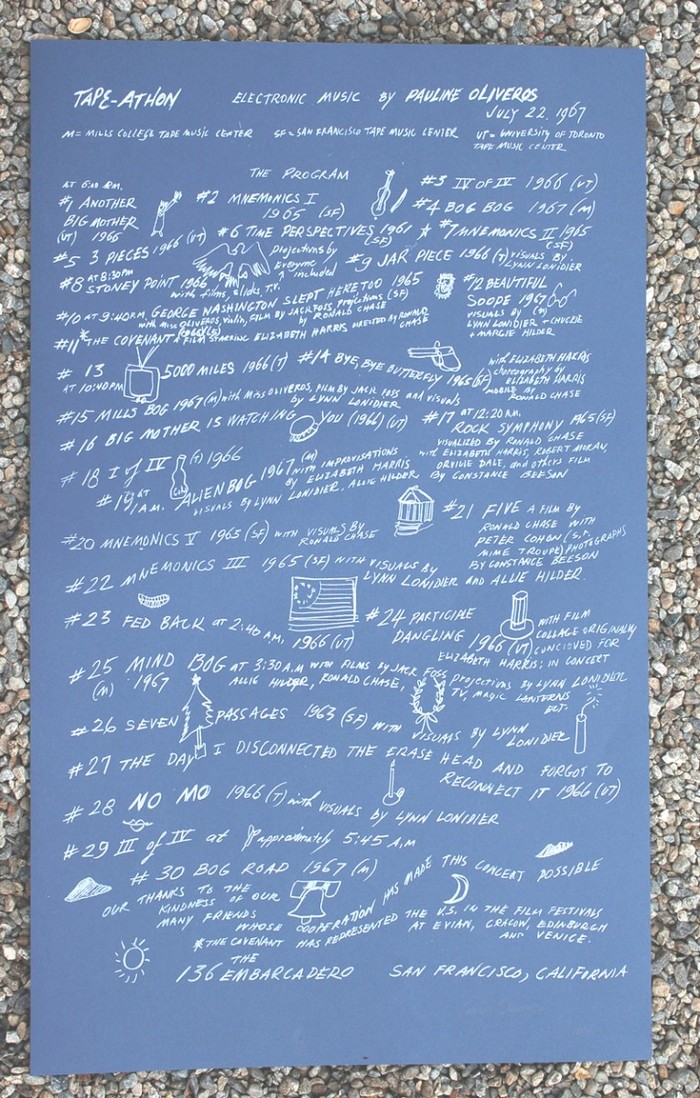 TAPE-ATHON ELECTRONIC MUSIC BY PAULINE OLIVEROS
JULY 22. 1967
M = MILLS COLLEGE TAPE MUSIC CENTER SF = SAN FRANCISCO TAPE MUSIC CENTER UT = UNIVERSITY OF TORONTO
TAPE MUSIC CENTER
THE PROGRAM
AT 6:00 P.M.
#1 ANOTHER
BIG MOTHER
(UT) 1966
#2 MNEMONICS I
1965 (SF)
#3 IV OF IV 1966 (UT)
#4 BOG BOG 1967 (M)
#5 3 PIECES 1966 (UT)
#6 TIME PERSPECTIVES 1961
(SF)
projections by
Everyone
included
#7 MNEMONICS II 1965
(SF)
#8 AT 8:30PM
STONEY POINT 1966
with films, slides, T.V.
#9 JAR PIECE 1966 (T) VISUALS BY
LYNN LONIDIER
#10 AT 9:40P.M. GEORGE WASHINGTON SLEPT HERE TOO 1965
with Miss OLIVEROS, Violin, FILM BY JACK FOSS, projections (SF)
by RONALD CHASE
#11 * THE COVENANT A FILM STARRING ELIZABETH HARRIS DIRECTED BY RONALD
CHASE
#12 BEAUTIFUL
SOOPE 1967
VISUALS BY (M)
LYNN LONIDIER + CHUCKE
+ MARGIE HILDER
# 13
AT 10:40PM
5000 MILES 1966 (T)
#14 BYE, BYE BUTTERFLY 1965 (SF)
with ELIZABETH HARRIS
choreography by
ELIZABETH HARRIS
MOBILE BY
RONALD CHASE
#15 MILLS BOG 1967 (M) with MISS OLIVEROS, FILM BY JACK FOSS and VISUALS
by LYNN LONIDIER
#16 BIG MOTHER IS WATCHING YOU (1966) (UT)
#17 AT 12:20 A.M.
ROCK SYMPHONY 1965 (SF)
VISUALIZED BY RONALD CHASE
with ELIZABETH HARRIS, ROBERT MORAN,
ORVILLE DALE, and others FILM
BY CONSTANCE BEESON
#18 I of IV (T) 1966
#19 AT
1 A.M. ALIEN BOG 1967 (M) with IMPROVISATIONS
BY ELIZABETH HARRIS
VISUALS BY LYNN LONIDIER, ALLIE HILDER.
#20 MNEMONICS V 1965 (SF) WITH VISUALS BY
RONALD CHASE
#21 FIVE A FILM BY
RONALD CHASE WITH
PETER COHON (S.F.
MIME TROUPE) PHOTOGRAPHS
BY CONSTANCE BEESON
#22 MNEMONICS III 1965 (SF) WITH VISUALS BY
LYNN LONIDIER AND ALLIE HILDER.
#23 FED BACK at 2:40 A.M. 1966 (UT)
#24 PARTICIPLE
DANGLING 1966 (UT)
WITH FILM
COLLAGE ORIGINALLY
CONCIEVED FOR
ELIZABETH HARRIS; IN CONCERT
#25 MIND BOG AT 3:30 A.M WITH FILMS BY JACK FOSS projections BY LYNN LONIDIER
(M) 1967 ALLIE HILDER, RONALD CHASE, TV, MAGIC LANTERNS
ECT.
#26 SEVEN PASSAGES 1963 (SF) WITH VISUALS BY LYNN
LONIDIER
#27 THE DAY I DISCONNECTED THE ERASE HEAD AND FORGOT TO
RECONNECT IT 1966 (UT)
#28 NO MO 1966 (T) with VISUALS BY LYNN LONIDIER
#29 III of IV at approximately 5:45 A.M
#30 BOG ROAD 1967 (M)
OUR THANKS TO THE
KINDNESS OF OUR
MANY FRIENDS
WHOSE COOPERATION HAS MADE THIS CONCERT POSSIBLE
* THE COVENANT HAS REPRESENTED THE U.S. IN THE FILM FESTIVALS
AT EVIAN, CRACOW, EDINBURGH
AND VENICE.
THE
136 EMBARCADERO SAN FRANCISCO, CALIFORNIA